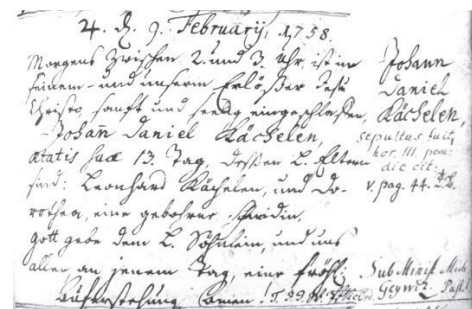 4. d. 9. February, 1758.
Morgens zwischen 2. und 3. Uhr, ist in
seinem und unserm Erlößer Jesu
Christo, sanft und seelig eingeschlaffen,
Johann Daniel Kächelen,
ætatis suæ 13. Tag, dessen L. Eltern
sind: Leonhard Kächelen, und Do-
rothea, eine gebohrne
Gott gebe dem L. Söhnlein, und uns
allen an jenem Tag, eine fröhl:
Auferstehung! Amen!
Johann
Daniel
Kächelen,
sepultus fuit,
hor. III. pom:
die cit:
v. pag. 44.
Sub Minist.
Geywiz. Past.